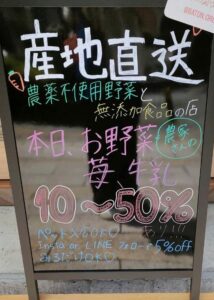 産地直送
農薬不使用野菜と
無添加食品の店
本日、お野菜
農家さんの
苺、牛乳
10〜50%
Insta or LINE フォローで5%off